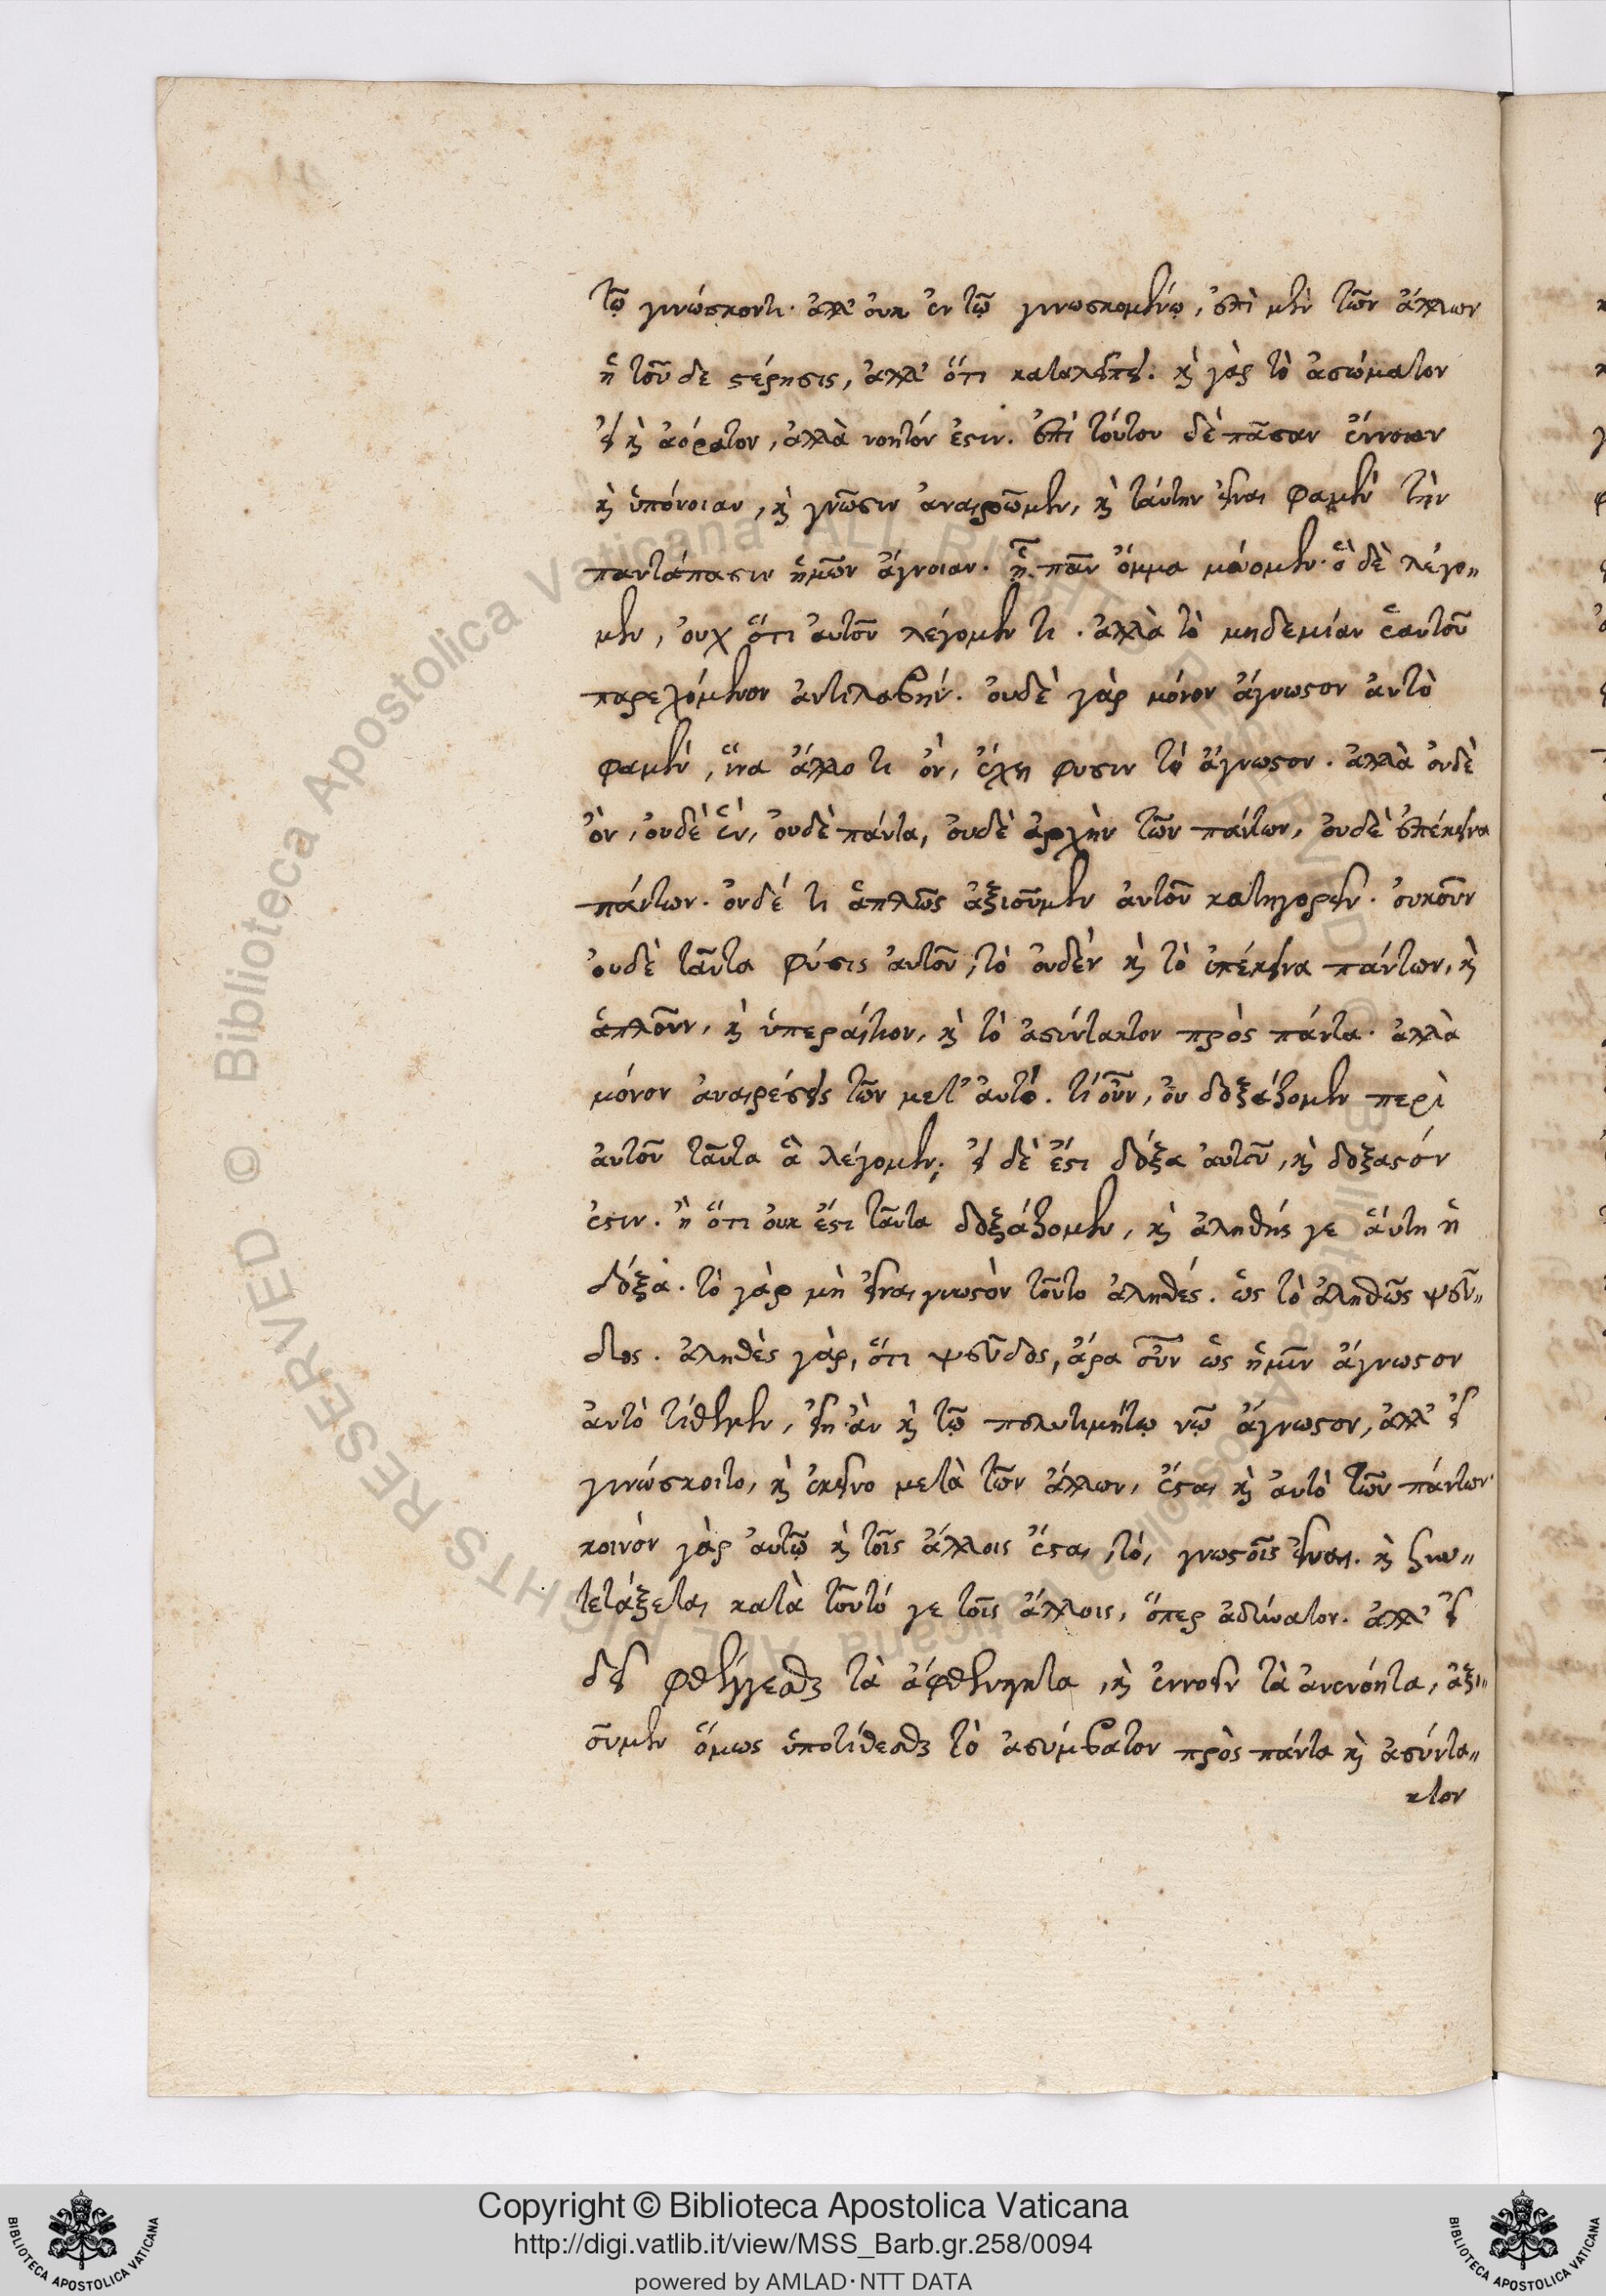 τῷ γινώσκοντι· ἀλλ' οὐκ ἐν τῷ γινωσκομένῳ, ἐπὶ μὲν τῶν ἄλλων
ἡ τοῦδε στέρησις, ἀλλ' ὅτι καταλείπει. καὶ γὰρ τὸ ἀσώματον
εἰ καὶ ἀόρατον, ἀλλὰ νοητόν ἐστιν. ἐπὶ τούτου δὲ πᾶσαν ἔννοιαν
καὶ ὑπόνοιαν, καὶ γνῶσιν ἀναιροῦμεν, καὶ ταύτην εἶναι φαμὲν τὴν
παντάπασιν ἡμῶν ἄγνοιαν. ᾗ πᾶν ὄμμα μύομεν· ὃ δὲ λέγο〃
μεν, οὐχ ὅτι αὐτοῦ λέγομεν τι. ἀλλὰ τὸ μηδεμίαν ἑαυτοῦ
παρεχόμενον ἀντιλαβήν. οὐδὲ γὰρ μόνον ἄγνωστον αὐτὸ
φαμὲν, ἵνα ἄλλο τι ὂν, ἔχῃ φύσιν τὸ ἄγνωστον. ἀλλὰ οὐδὲ
ὂν, οὐδὲ ἓν, οὐδὲ πάντα, οὐδὲ ἀρχὴν τῶν πάντων, οὐδὲ ἐπέκεινα
πάντων. οὐδέ τι ἁπλῶς ἀξιοῦμεν αὐτοῦ κατηγορεῖν. οὐκοῦν
οὐδὲ ταῦτα φύσις αὐτοῦ, τὸ οὐδὲν καὶ τὸ ἐπέκεινα πάντων, καὶ
ἁπλοῦν, καὶ ὑπεραίτιον, καὶ τὸ ἀσύντακτον πρὸς πάντα· ἀλλὰ
μόνον ἀναιρέσεις τῶν μετ' αὐτό. τί οὖν, οὐ δοξάζομεν περὶ
αὐτοῦ ταῦτα ἃ λέγομεν; εἰ δὲ ἔστι δόξα αὐτοῦ, καὶ δοξαστόν
ἐστιν. ἢ ὅτι οὐκ ἔστι ταῦτα δοξάζομεν, καὶ ἀληθής γε αὕτη ἡ
δόξα. τὸ γὰρ μὴ εἶναι γνωστὸν τοῦτο ἀληθές. ὡς τὸ ἀληθῶς ψεῦ〃
δος. ἀληθὲς γὰρ, ὅτι ψεῦδος, ἄρα οὖν ὡς ἡμῖν ἄγνωστον
αὐτὸ τίθεμεν, εἴη ἂν καὶ τῷ πολυτιμήτῳ νῷ ἄγνωστον, ἀλλ' εἰ
γινώσκοιτο, καὶ ἐκεῖνο μετὰ τῶν ἄλλων, ἔσται καὶ αὐτὸ τῶν πάντων·
κοινὸν γὰρ αὐτῷ καὶ τοῖς ἄλλοις ἔσται, τό, γνωστοῖς εἶναι. καὶ συν〃
τετάξεται κατὰ τοῦτό γε τοῖς ἄλλοις, ὅπερ ἀδύνατον. ἀλλ' εἰ
δεῖ φθέγγεσθαι τὰ ἄφθεγκτα, καὶ ἐννοεῖν τὰ ἀνενόητα, ἀξι〃
οῦμεν ὅμως ὑποτίθεσθαι τὸ ἀσύμβατον πρὸς πάντα καὶ ἀσύντα〃
κτον
Copyright © Biblioteca Apostolica Vaticana
http://digi.vatlib.it/view/MSS_Barb.gr.258/0094
powered by AMLAD·NTT DATA
BIBLIOTECA APOSTOLICA VATICANA
BIBLIOTECA APOSTOLICA VATICANA
Biblioteca Apostolica Vaticana ALL RIGHTS RESERVED ©